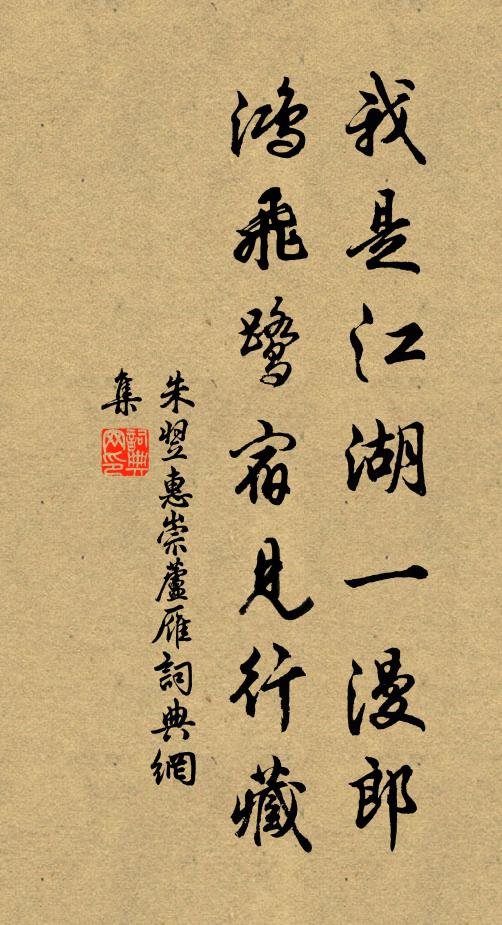 我是江湖一漫郎
鴻飛鷺宿見行藏
朱翌惠崇蘆雁詞典網
集
詞典
网印